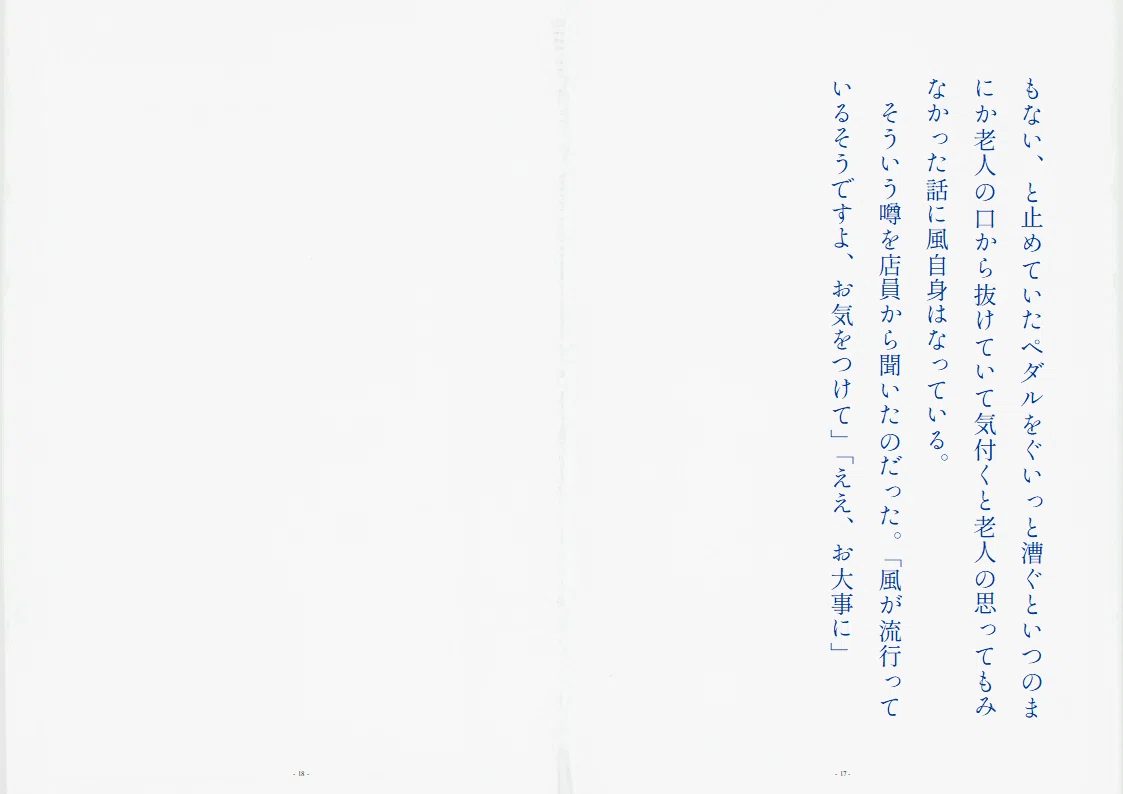 もない、と止めていたペダルをぐいっと漕ぐといつのま
にか老人の口から抜けていて気付くと老人の思ってもみ
なかった話に風自身はなっている。
そういう噂を店員から聞いたのだった。「風が流行って
いるそうですよ、お気をつけて」「ええ、お大事に」
- 17 -
- 18 -